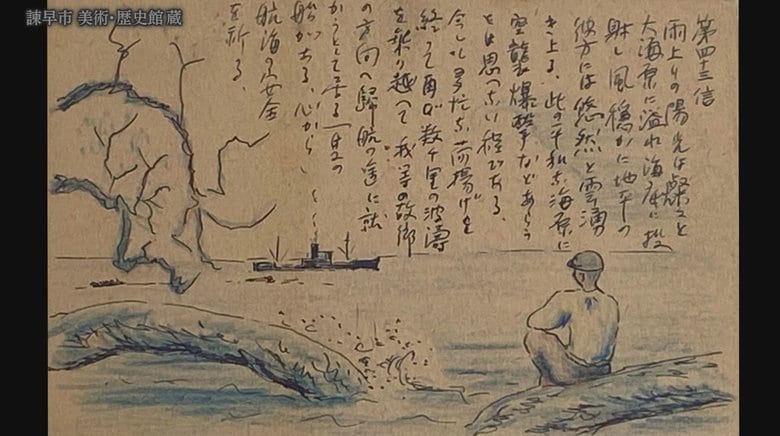 諫早市 美術・歴史館 蔵
第四十三信
雨上りの陽光は燦々と
大海原に溢れ海底に投
射し風穏かに地平の
彼方には悠然と雲湧
き上る、此の平和な海原に
空襲爆撃などあらう
とは思へない程である、
今しも多忙な荷揚げを
終って再び数千里の波濤
を乗り越へて我等の故郷
の方向へ帰航の途に就
かうとして居る一隻の
船がある、心から
航海の安全
を祈る、